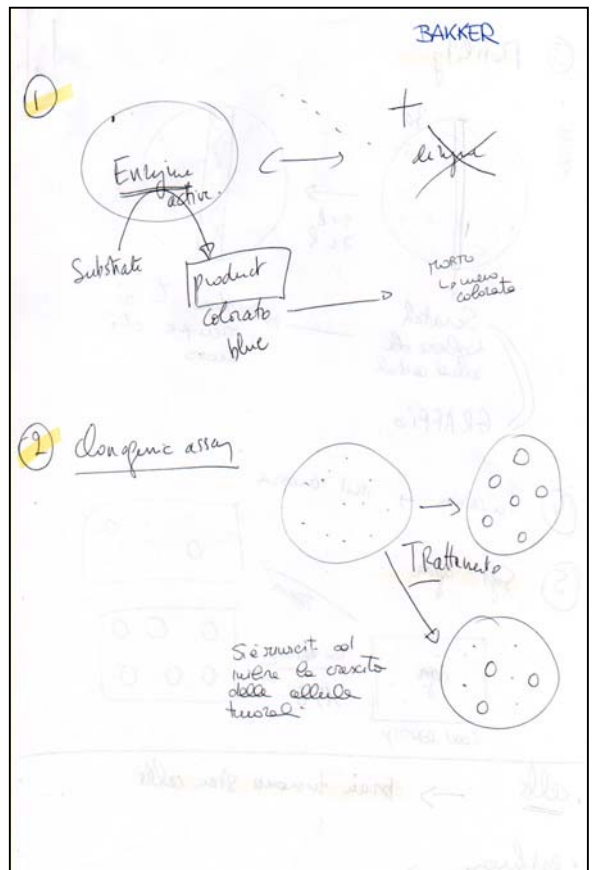 BAKKER
1
Enzyme
active.
Substrate
product
colorato
blue
+
MORTO
↳ meno
colorato
2 Clonogenic assay
TRattamento
Si è riuscit ad
inibire la crescita
delle cellule
tumorali